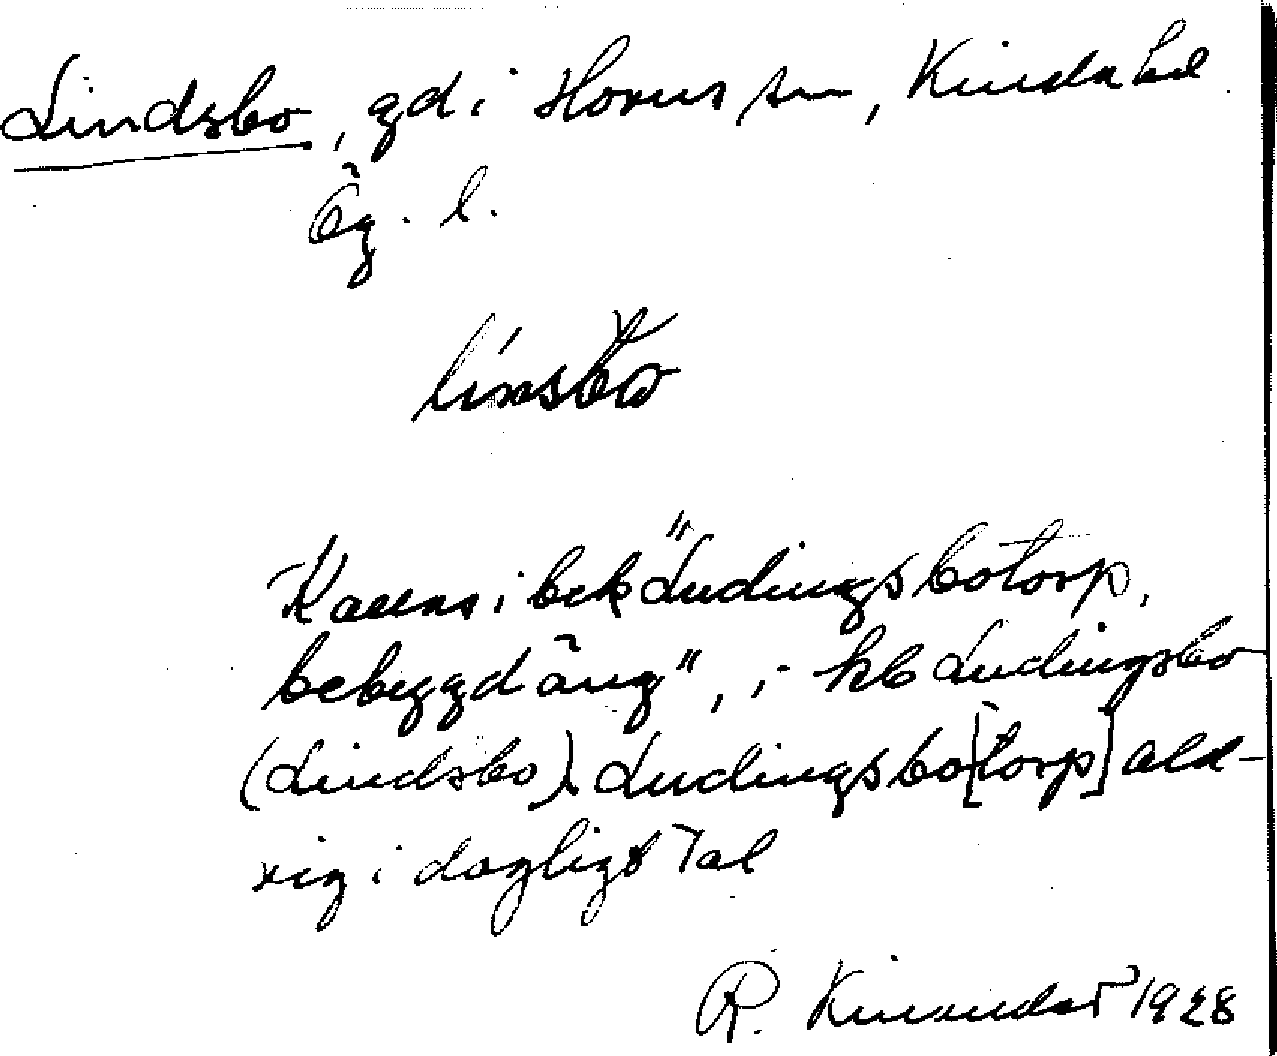 Lindsbo, gd i Horns sn, Kinda hd
Ög. l.
línsbω
Kallas i bek "Ludingsbotorp,
bebyggd äng", i hb Ludingsbo
(Lindsbo). Ludingsbo[torp] ald-
rig i dagligt tal
R. Kinander 1928